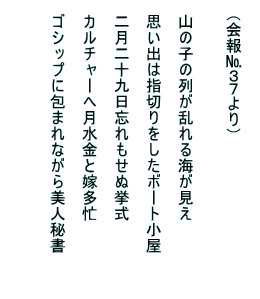 (会報№37より)
山の子の列が乱れる海が見え
思い出は指切りをしたボート小屋
二月二十九日忘れもせぬ挙式
カルチャーへ月水金と嫁多忙
ゴシップに包まれながら美人秘書